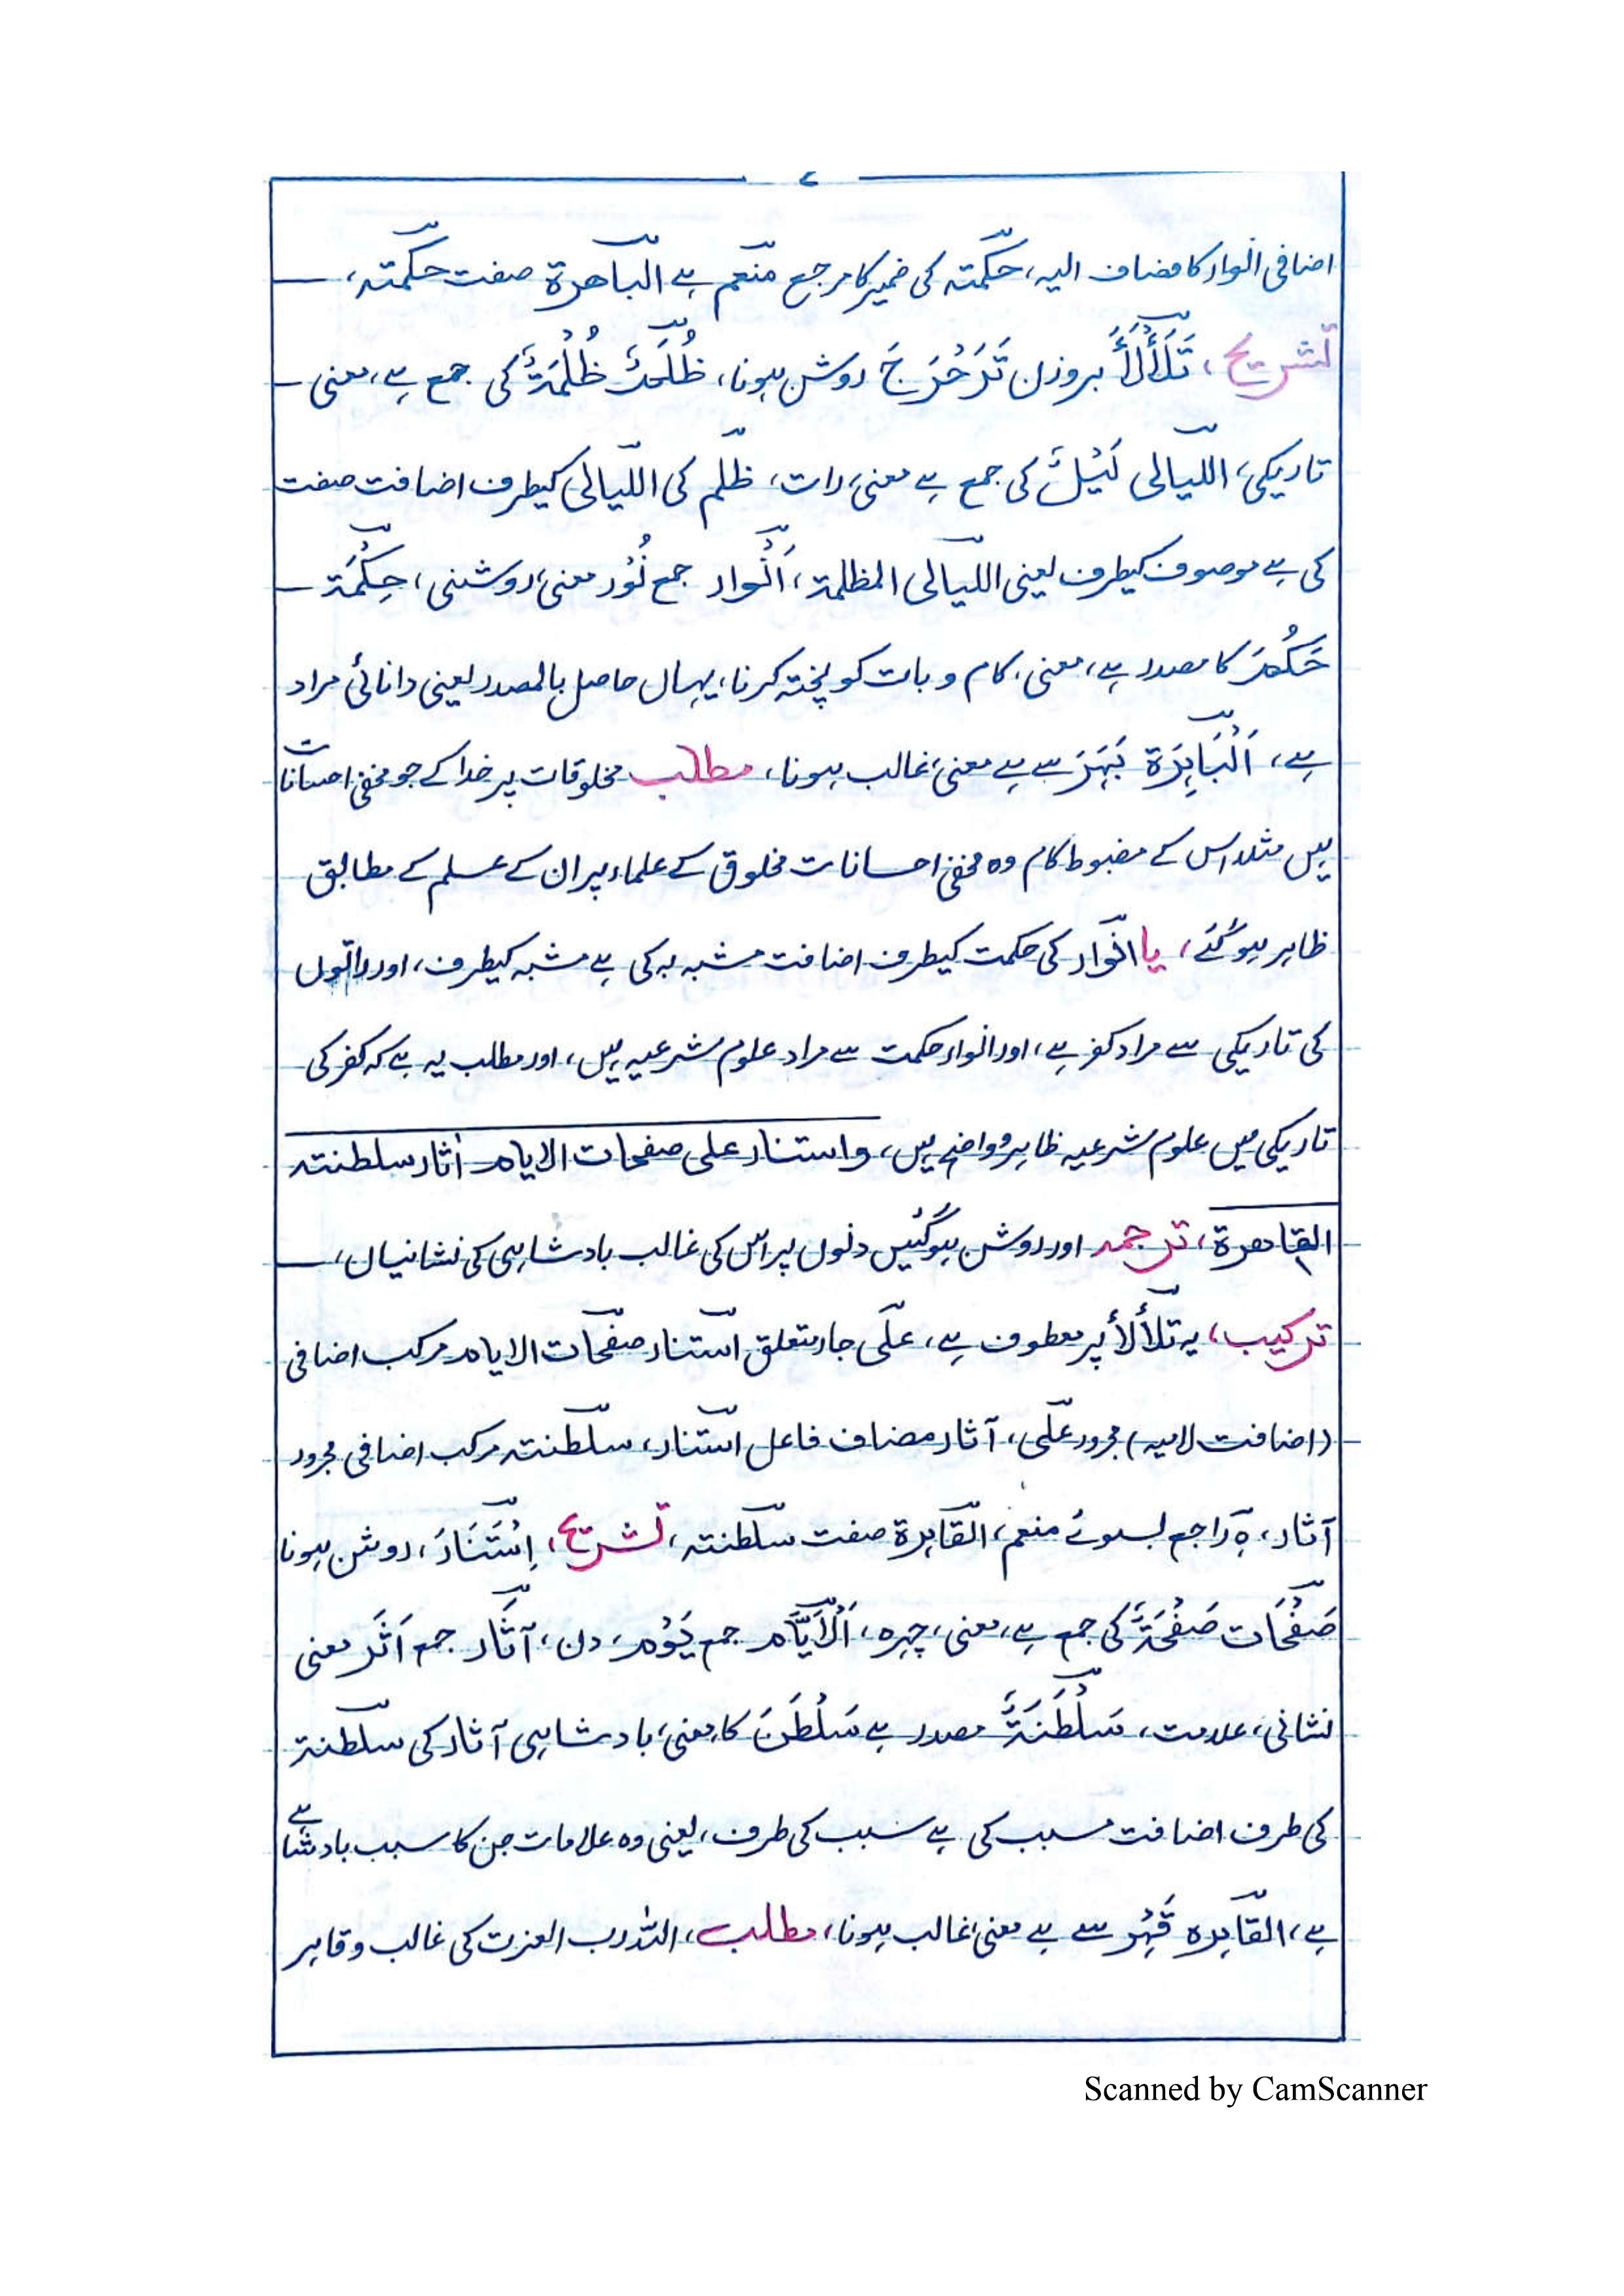 ۷
اضافی انوار کا مضاف الیہ، حکمتہ کی ضمیر کا مرجع منعم ہے الباھرة صفت حکمتہ،
تشریح، تَلَأْلَأَ بروزن تَدَحْرَجَ روشن ہونا، ظُلَمٌ ظُلْمَةٌ کی جمع ہے، معنی
تاریکی، اللیالی لَیْلٌ کی جمع ہے معنی، رات، ظلم کی اللیالی کیطرف اضافت صفت
کی ہے موصوف کیطرف یعنی اللیالی المظلمة، اَنْوار جمع نُوْر معنی، روشنی، حِکْمَة
حَکُمَ کا مصدر ہے، معنی، کام و بات کو پختہ کرنا، یہاں حاصل بالمصدر یعنی دانائی مراد
ہے، اَلْبَاہِرَة بَہَرَ سے ہے معنی، غالب ہونا، مطلب مخلوقات پر خدا کے جو مخفی احسانات
ہیں مثلا اس کے مضبوط کام وہ مخفی احسانات مخلوق کے علماء پر ان کے علم کے مطابق
ظاہر ہوگئے، یا انوار کی حکمت کیطرف اضافت مشبہ بہ کی ہے مشبہ کیطرف، اور راتوں
کی تاریکی سے مراد کفر ہے، اور انوار حکمت سے مراد علوم شرعیہ ہیں، اور مطلب یہ ہے کہ کفر کی
تاریکی میں علوم شرعیہ ظاہر و واضح ہیں، واستنار علی صفحات الایام اٰثار سلطنتہ
القاھرة، ترجمہ اور روشن ہوگئیں دنوں پر اس کی غالب بادشاہی کی نشانیاں،
ترکیب، یہ تلألأ پر معطوف ہے، علی جار متعلق استنار صفحات الایام مرکب اضافی
(اضافت لامیہ) مجرور علی، آثار مضاف فاعل استنار، سلطنتہ مرکب اضافی مجرور
آثار، ہ راجع بسوئے منعم، القاہرة صفت سلطنتہ، تشریح، اِسْتَنَارَ، روشن ہونا
صَفْحَات صَفْحَةٌ کی جمع ہے، معنی، چہرہ، اَلْاَیَّام جمع یَوْم، دن، آثَار جمع اَثَر معنی
نشانی، علامت، سَلْطَنَةٌ مصدر ہے سَلْطَنَ کا معنی، بادشاہی آثار کی سلطنة
کی طرف اضافت مسبب کی ہے سبب کی طرف، یعنی وہ علامات جن کا سبب بادشاہی
ہے، القاہرہ قَہْر سے ہے معنی، غالب ہونا، مطلب، اللہ رب العزت کی غالب و قاہر
Scanned by CamScanner